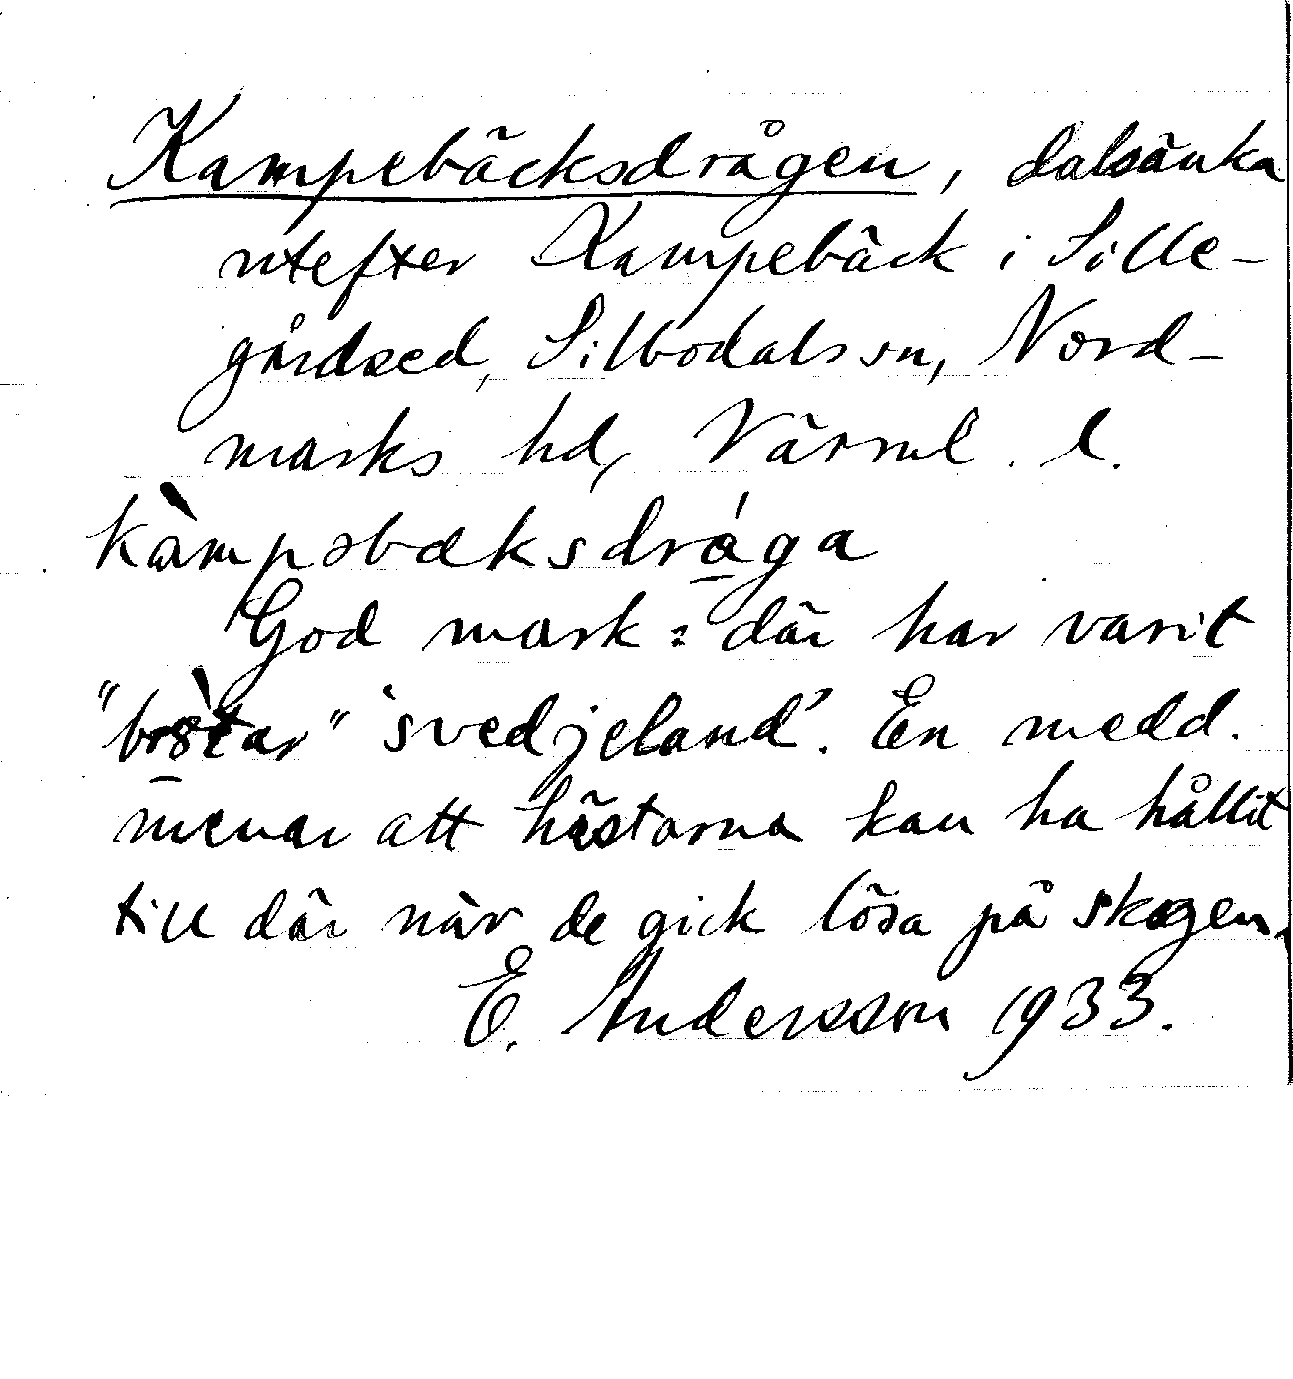 Kampebäcksdrågen, dalsänka
utefter Kampebäck i Sille-
gårdsed, Silbodals sn, Nord-
marks hd, Värml. l.
kàmpəbæksdrága
God mark: där har varit
"bròtar" 'svedjeland'. En medd.
menar att hästarna kan ha hållit
till där när de gick lösa på skogen.
E. Andersson 1933.